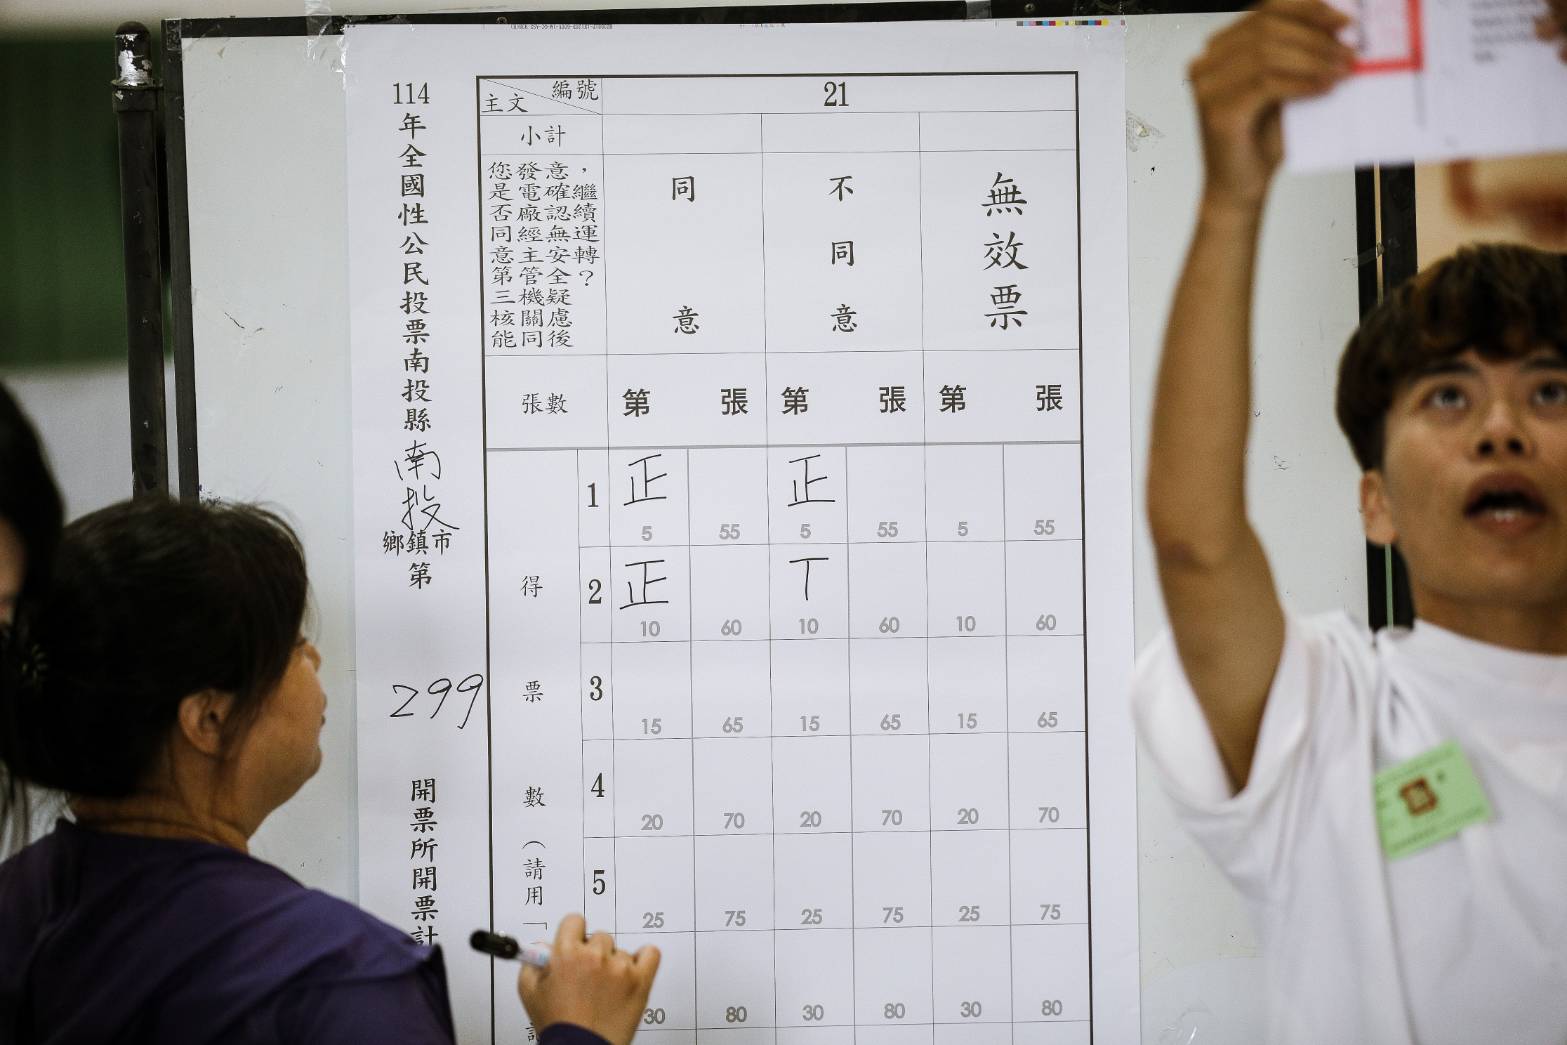 114年全國性公民投票南投縣南投鄉鎮市第299開票所開票計
編號
主文
21
小計
您是否同意第三核能
發電廠經主管機關同
意確認無安全疑慮後
，繼續運轉？
同意
不同意
無效票
張數
第 張
第 張
第 張
得票數（請用「
1
正
5
55
正
5
55
5
55
2
正
10
60
丅
10
60
10
60
3
15
65
15
65
15
65
4
20
70
20
70
20
70
5
25
75
25
75
25
75
30
80
30
80
30
80